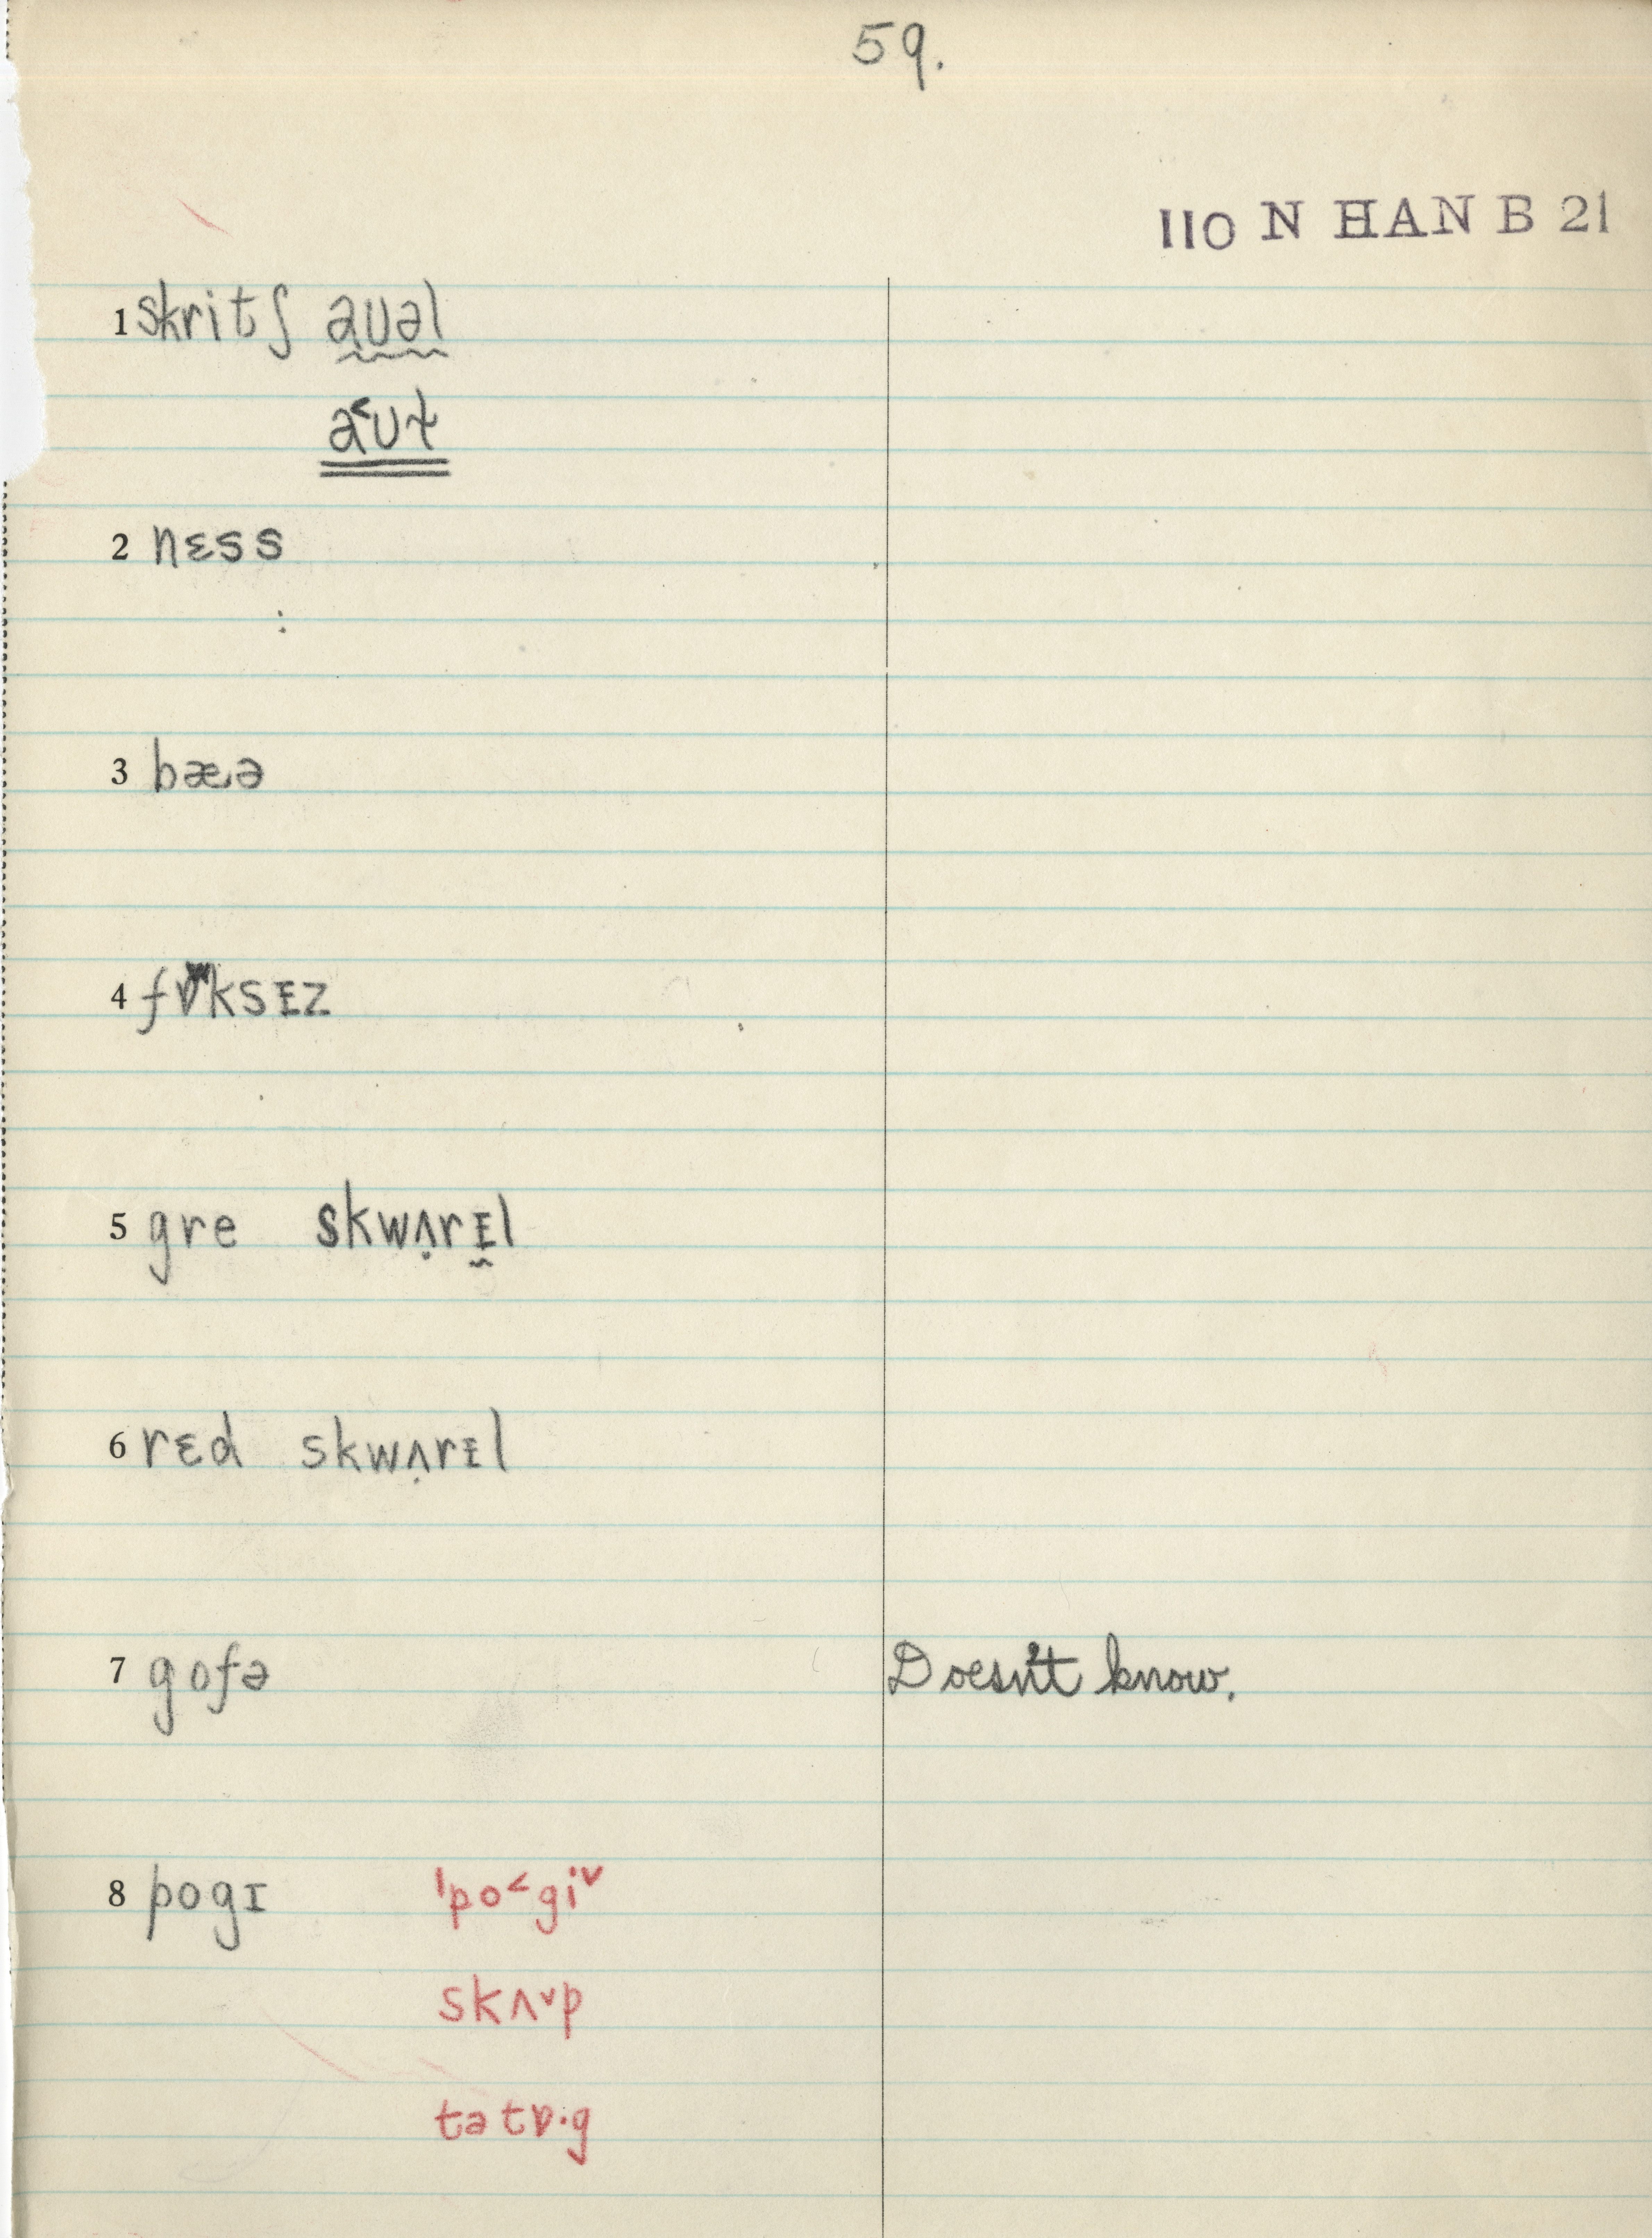 59.
110 N HAN B 21
1 skritʃ aʊəl
a˂ʊɫ
2 nɛss
3 bæə
4 fɒksɪz
5 gre skwʌ̣rɪl
6 rɛd skwʌ̣rɪl
7 gofə Doesn't know.
8 pogɪ ˈpo˂giˇ
skʌˇp
tətɒ·g